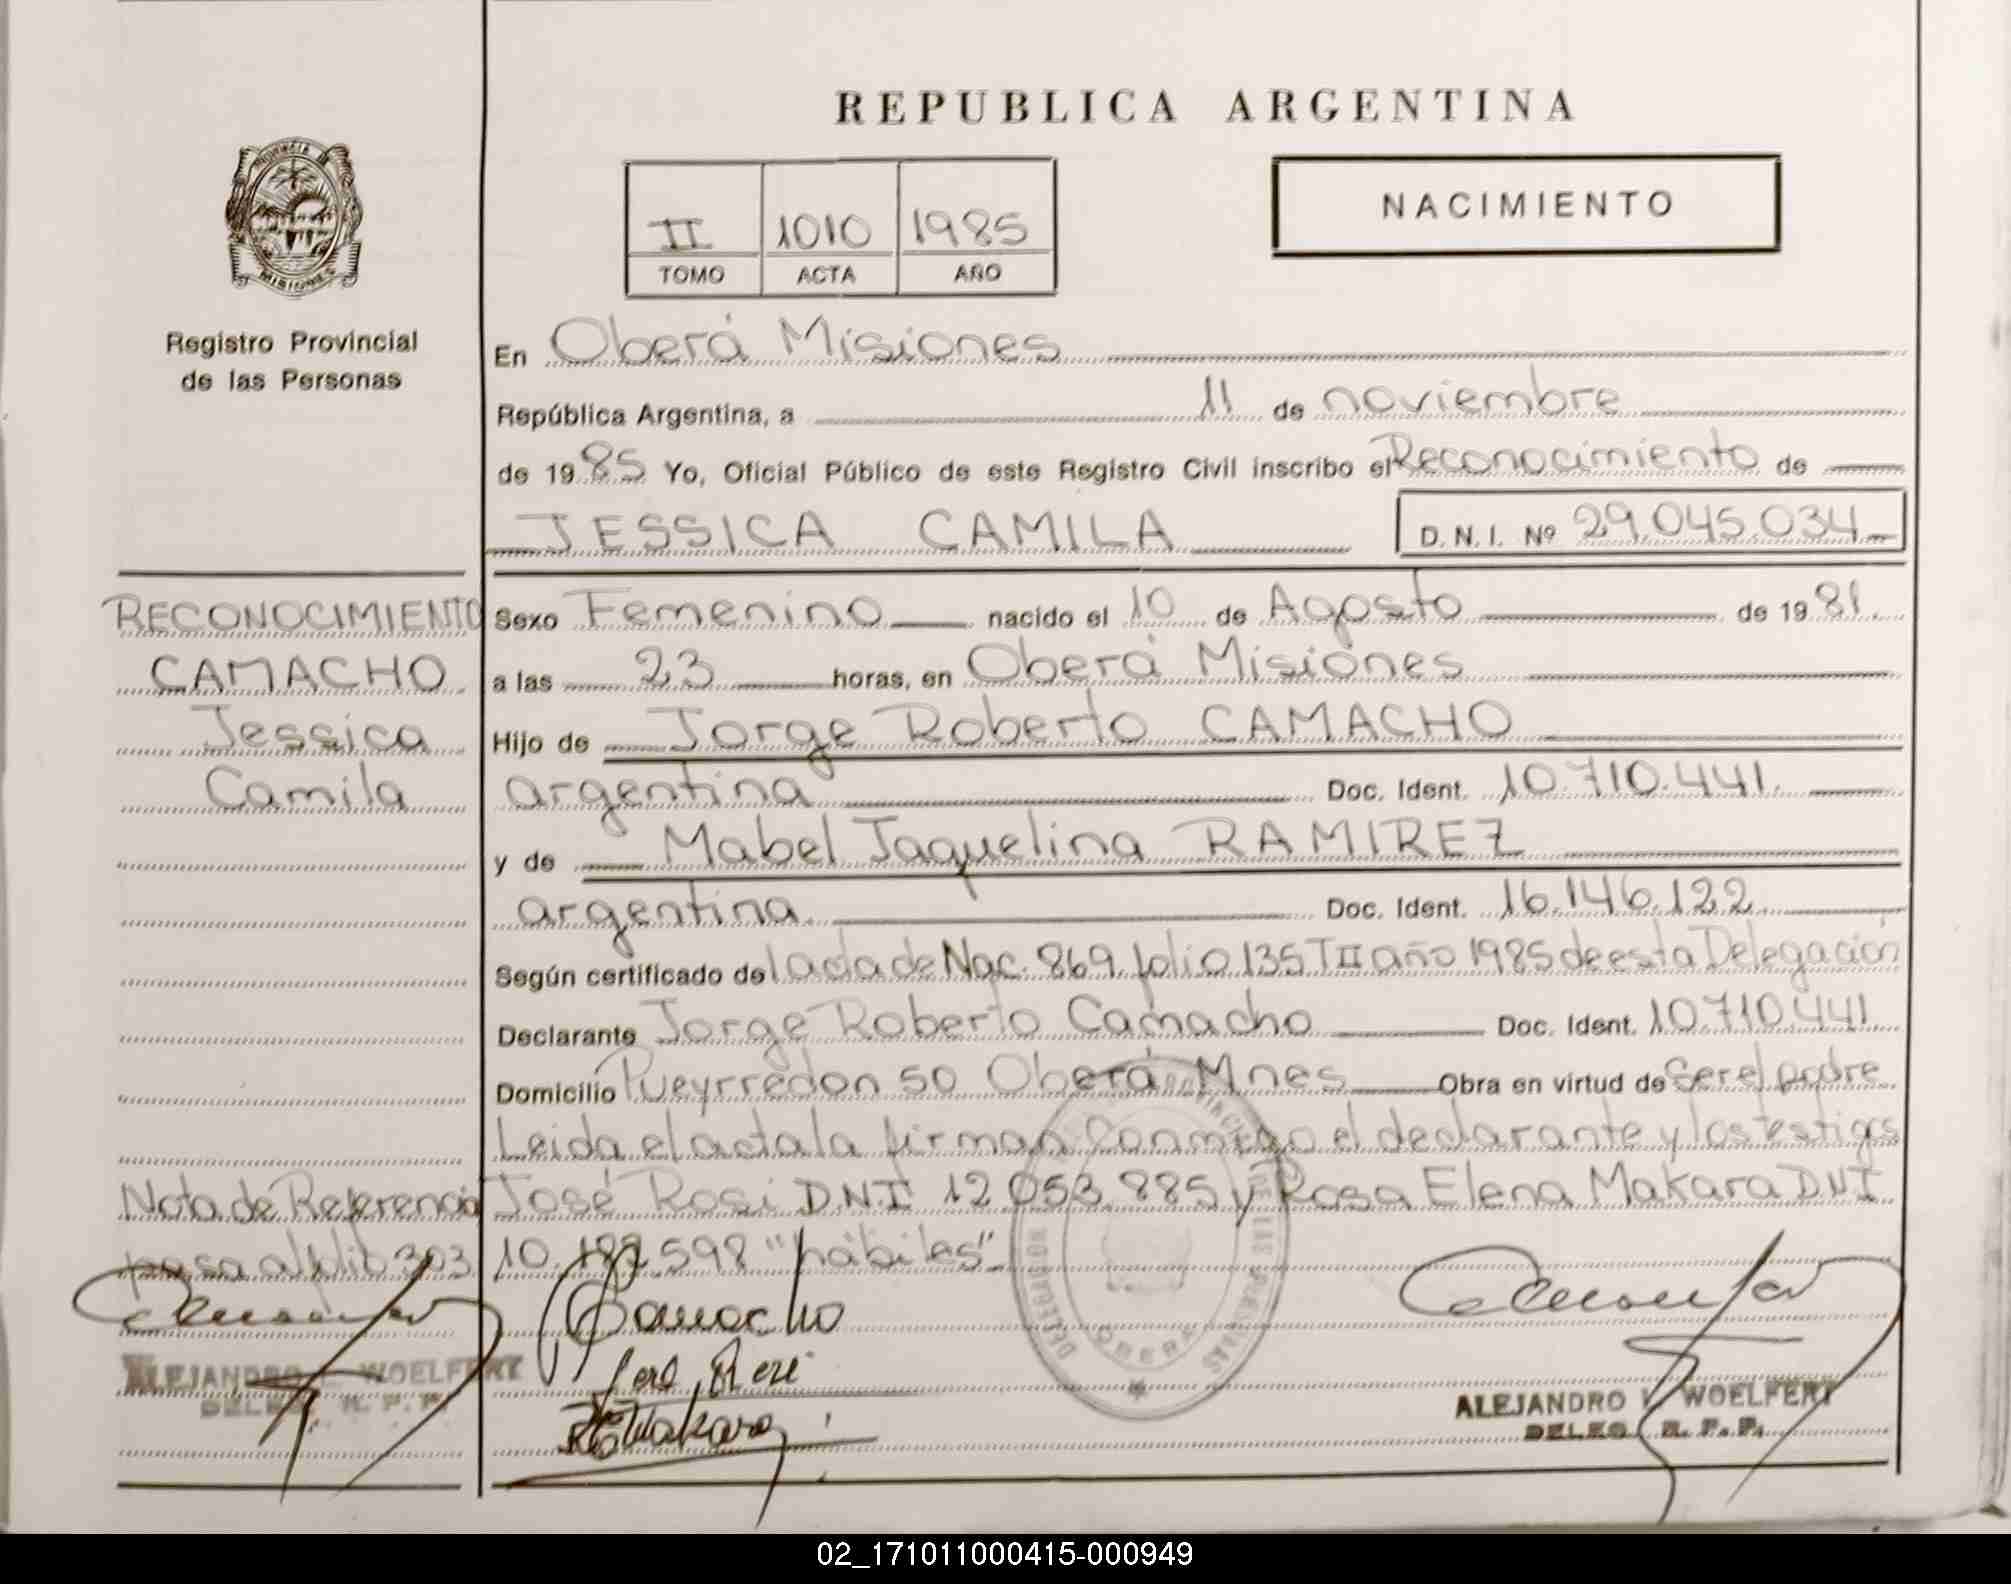 REPUBLICA ARGENTINA
PROVINCIA
MISIONES
Registro Provincial
de las Personas
II 1010 1985
TOMO ACTA AÑO
NACIMIENTO
En Oberá Misiones
República Argentina, a 11 de noviembre
de 1985 Yo, Oficial Público de este Registro Civil inscribo el Reconocimiento de
JESSICA CAMILA D.N.I. Nº 29.045.034
RECONOCIMIENTO
CAMACHO
Jessica
Camila
Sexo Femenino nacido el 10 de Agosto de 1981.
a las 23 horas, en Oberá Misiones
Hijo de Jorge Roberto CAMACHO
argentina Doc. Ident. 10.710.441.
y de Mabel Jaquelina RAMIREZ
argentina. Doc. Ident. 16.146.122
Según certificado del acta de Nac. 869 folio 135 T II año 1985 de esta Delegación
Declarante Jorge Roberto Camacho Doc. Ident. 10.710.441
Domicilio Pueyrredon 50 Oberá Mnes Obra en virtud de Ser el padre
Leida el acta la firman conmigo el declarante y los testigos
José Rosi D.N.I 12.053.885 y Rosa Elena Makara DNI
10. .598 "hábiles".
Nota de Referencia
pasa al folio 303
Camacho
DELEGACION DE LAS PERSONAS
OBERA
ALEJANDRO WOELFERT
DELEG. R. P. P.
ALEJANDRO WOELFERT
DELEG. R. P. P.
02_171011000415-000949